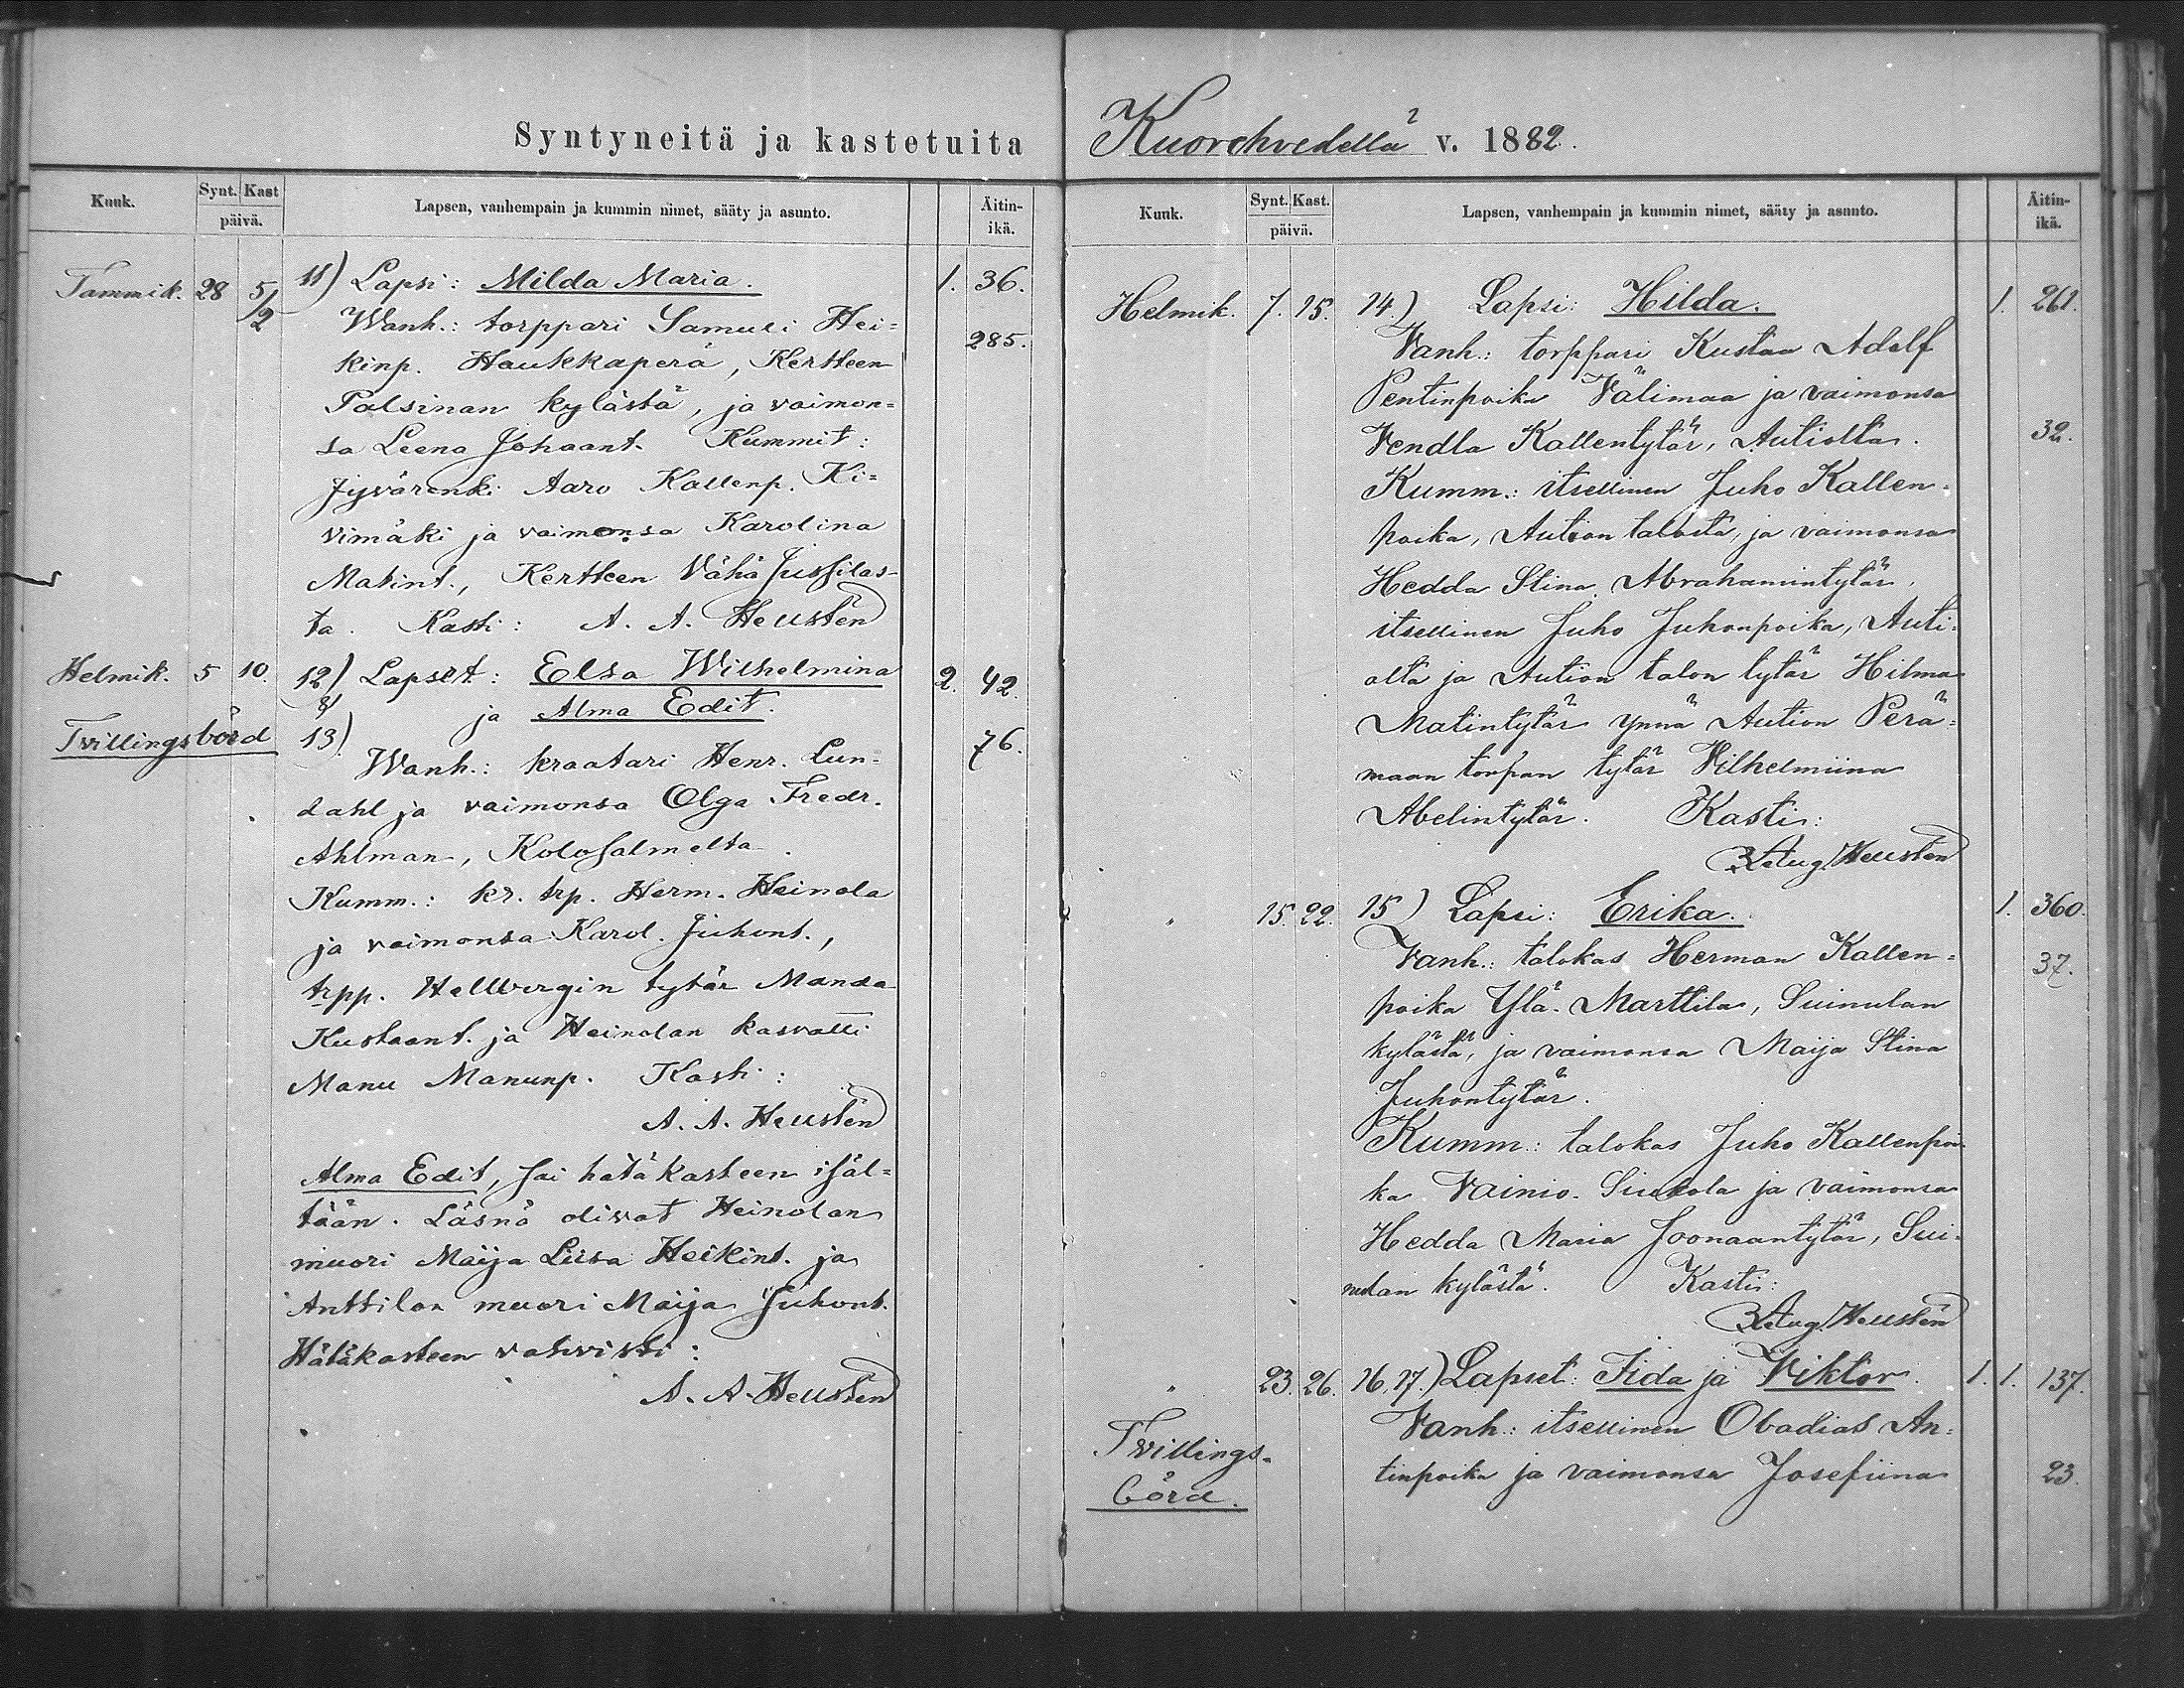 Syntyneitä ja kastetuita
Kuuk. Synt. Kast päivä. Lapsen, vanhempain ja kummin nimet, sääty ja asunto. Äitin-ikä.
Tammik. 28 5/2 11) Lapsi: Milda Maria. 1. 36.
Wanh.: torppari Samuli Hei= 285.
kinp. Haukkaperä, Kertteen
Palsinan kylästä, ja vaimon=
sa Leena Johaant. Kummit:
Jyvärenki Aaro Kallenp. Ki=
vimäki ja vaimonsa Karolina
Matint., Kertteen Vähä Jussilas-
ta. Kasti: A. A. Heusten
Helmik. 5 10. 12) Lapset: Elsa Wilhelmina 2. 42.
& ja Alma Edit.
Tvillingsbörd 13) 76.
Wanh.: kraatari Henr. Lun=
dahl ja vaimonsa Olga Fredr.
Ahlman, Kolosalmelta.
Kumm.: kr. trp. Herm. Heinola
ja vaimonsa Karol. Juhont.,
trpp. Hellbergin tytär Manda
Kustaant. ja Heinolan kasvatti
Manu Manunp. Kasti:
A. A. Heusten
Alma Edit, sai hätäkasteen isäl=
tään. Läsnä olivat Heinolan
muori Maija Liisa Heikint. ja
Anttilan muori Maija Juhont.
Hätäkasteen vahvisti:
A. A. Heusten
Kuorehvedellä v. 1882.
Kuuk. Synt. Kast. päivä. Lapsen, vanhempain ja kummin nimet, sääty ja asunto. Äitin-ikä.
Helmik. 7. 15. 14.) Lapsi: Hilda. 1. 261.
Vanh.: torppari Kustaa Adolf
Pentinpoika Välimaa ja vaimonsa
Vendla Kallentytär, Autiolta. 32.
Kumm.: itsellinen Juho Kallen-
poika, Aution talosta, ja vaimonsa
Hedda Stina Abrahamintytär,
itsellinen Juho Juhonpoika, Auti-
olta ja Aution talon tytär Hilma
Matintytär ynnä Aution Perä=
maan torpan tytär Vilhelmiina
Abelintytär. Kasti:
Aug. Heusten
" 15. 22. 15) Lapsi: Erika. 1. 360.
Vanh.: talokas Herman Kallen= 37.
poika Ylä-Marttila, Suinulan
kylästä, ja vaimonsa Maija Stina
Juhontytär.
Kumm.: talokas Juho Kallenpoi-
ka Vainio- ja vaimonsa
Hedda Maria Joonaantytär, Sui-
nulan kylästä. Kasti:
Aug. Heusten
" 23. 26. 16. 17.) Lapset: Fida ja Viktor. 1. 1. 137.
Vanh.: itsellinen Obadias An=
Tvillings-
tinpoika ja vaimonsa Josefiina 23.
börd.